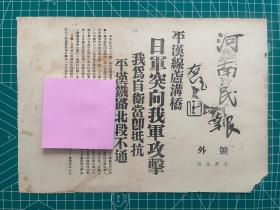 河南民報
號外
七月八日
平漢線盧溝橋
日軍突向我軍攻擊
我為自衛當卽抵抗
平漢鐵路北段不通